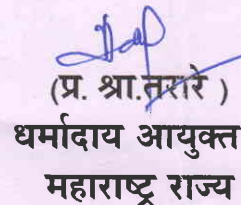 (प्र. श्रा.तरारे )
धर्मादाय आयुक्त
महाराष्ट्र राज्य